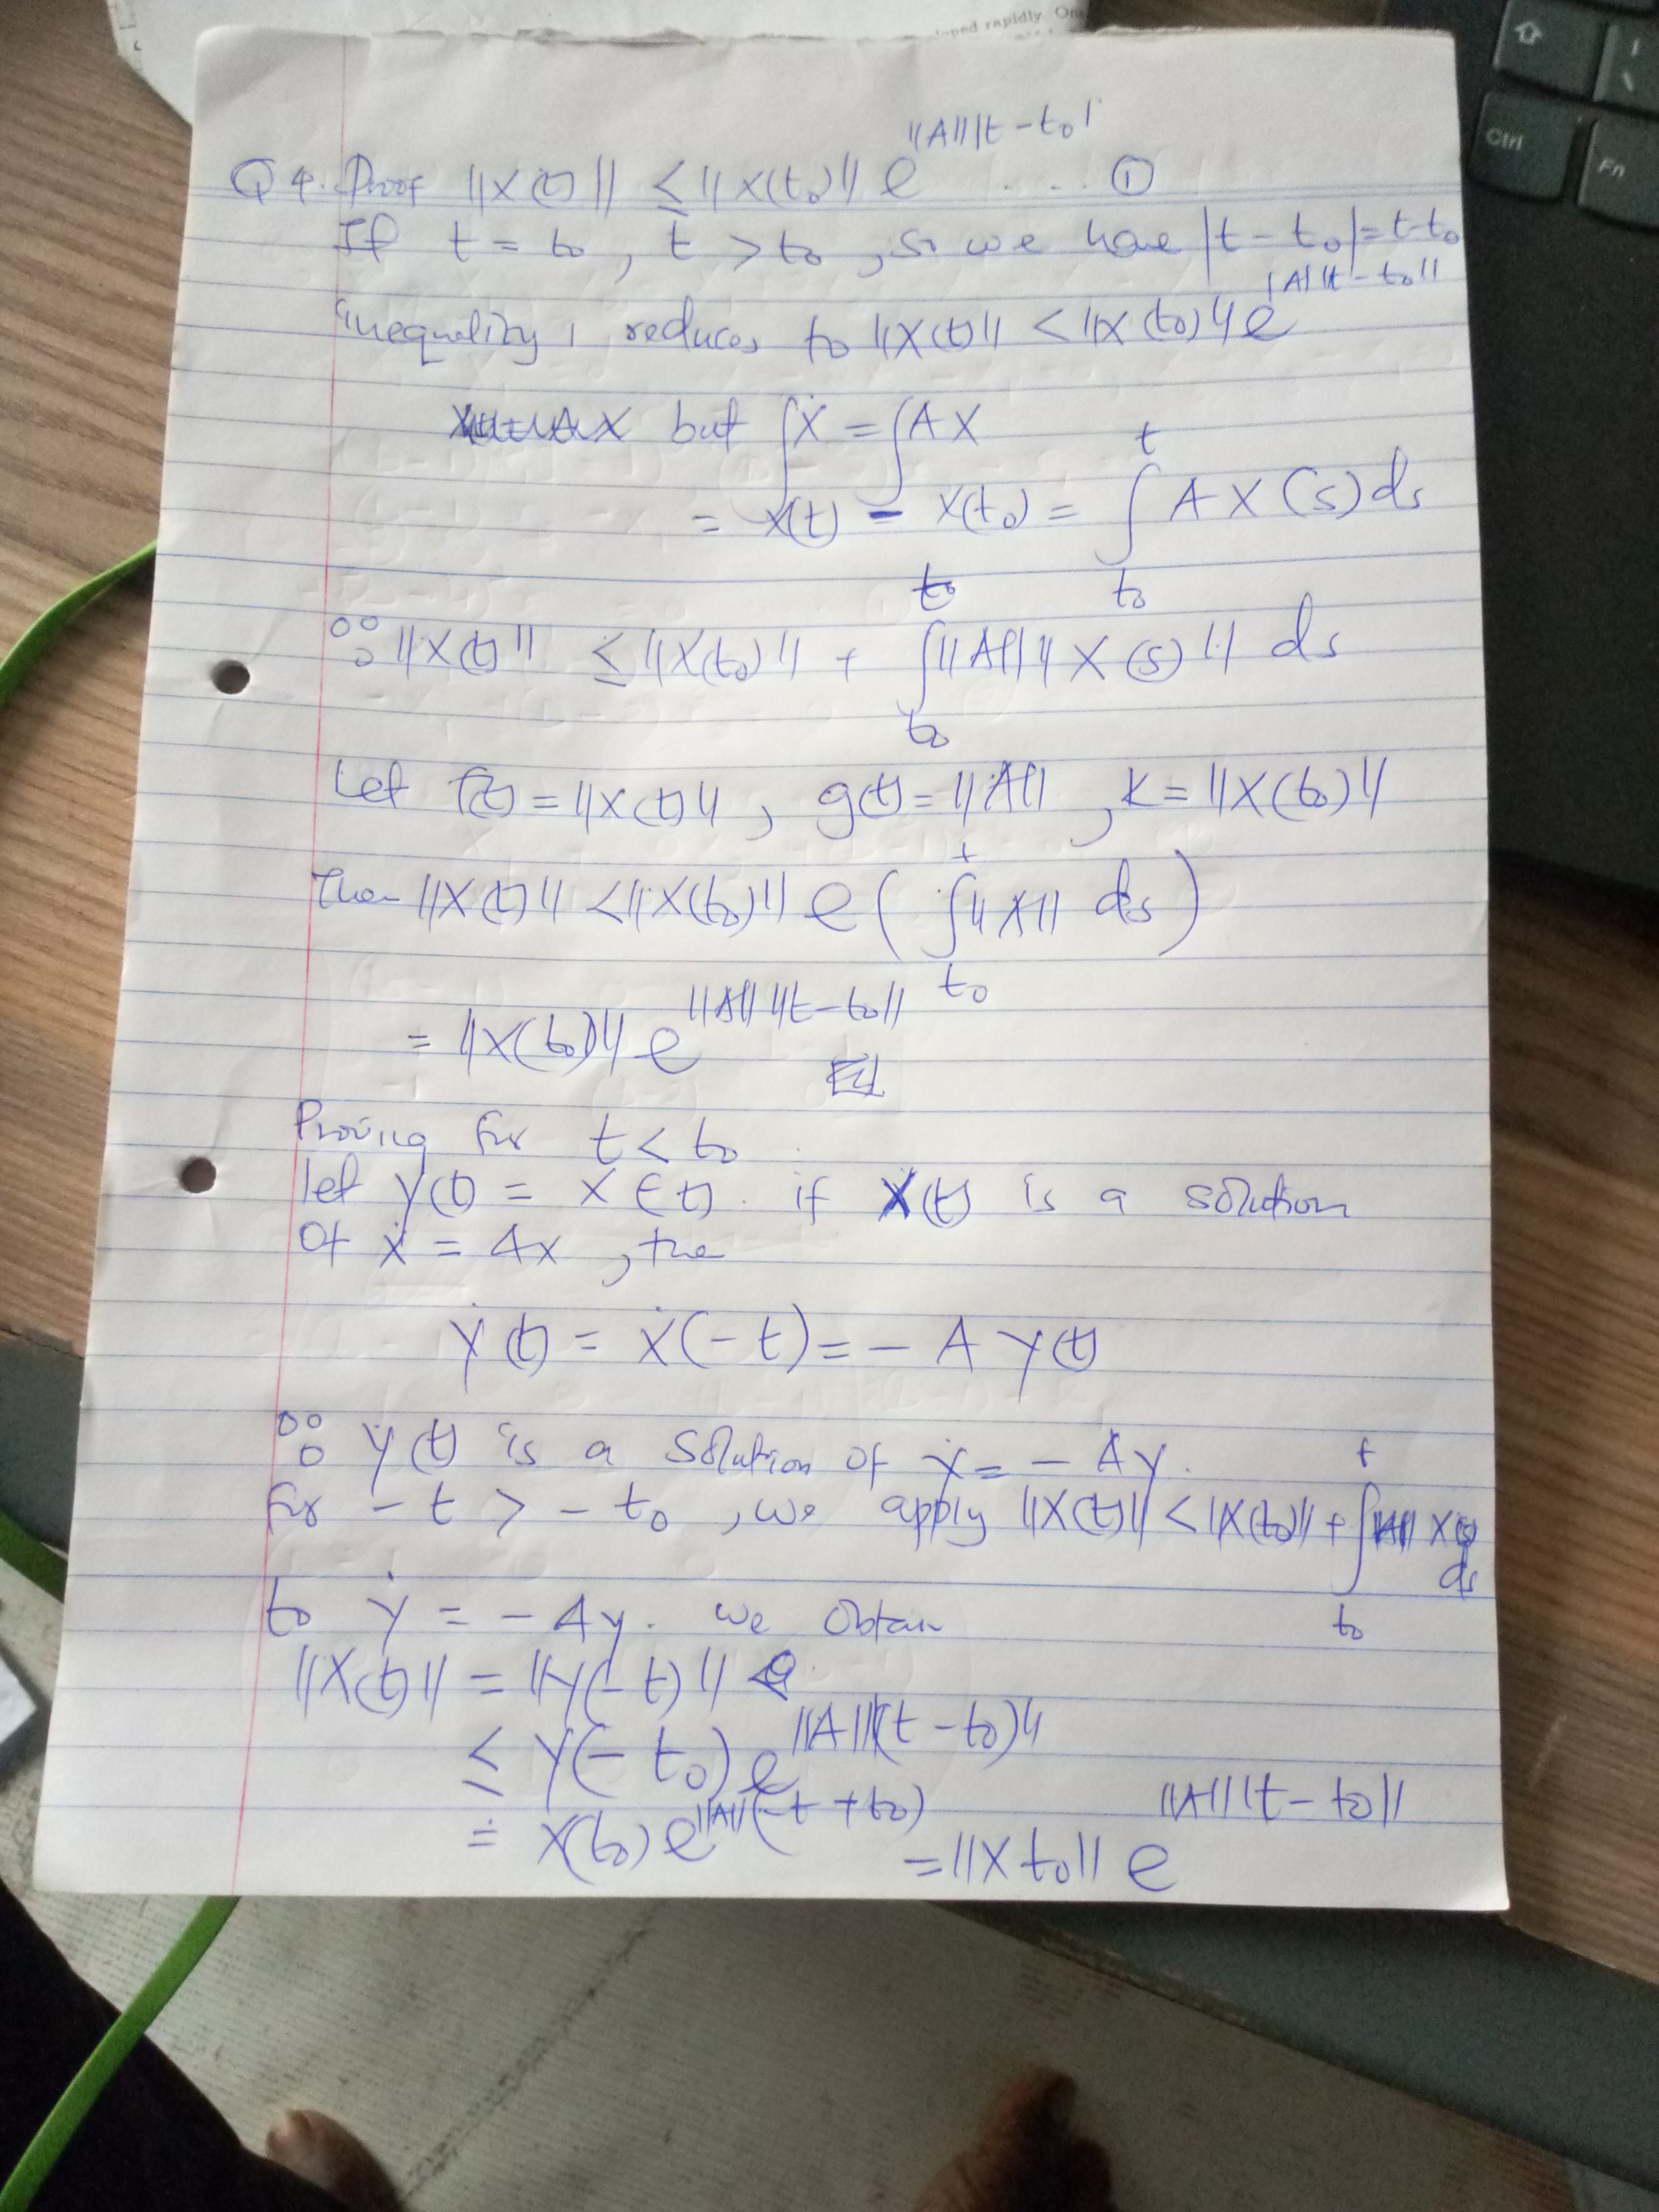 loped rapidly. One
Ctrl
Fn
Q 4. Proof ||X(t)|| ≤ ||X(t₀)|| e^{||A|| |t - t₀|} ... ①
If t = t₀, t > t₀, so we have |t - t₀| = t - t₀
inequality 1 reduces to ||X(t)|| < ||X(t₀)|| e^{||A|| |t - t₀||}
but ∫Ẋ = ∫AX
= X(t) - X(t₀) = ∫_{t₀}^{t} A X(s) ds
∴ ||X(t)|| ≤ ||X(t₀)|| + ∫_{t₀} ||A|| ||X(s)|| ds
Let f(t) = ||X(t)||, g(t) = ||A||, K = ||X(t₀)||
Then ||X(t)|| < ||X(t₀)|| e(∫_{t₀}^{t} ||A|| ds)
= ||X(t₀)|| e^{||A|| ||t - t₀||}
Proving for t < t₀
let Y(t) = X(-t). if X(t) is a solution
Of ẋ = Ax, the
Ẏ(t) = Ẋ(-t) = - A Y(t)
∴ Y(t) is a solution of ẏ = - Ay.
For -t > -t₀, we apply ||X(t)|| < ||X(t₀)|| + ∫_{t₀}^{t} ||A|| X(s) ds
to ẏ = - Ay. we Obtain
||X(t)|| = ||Y(-t)||
≤ Y(-t₀) e^{||A||(t - t₀)||}
= X(t₀) e^{||A||(-t + t₀)} = ||X t₀|| e^{||A|| |t - t₀||}